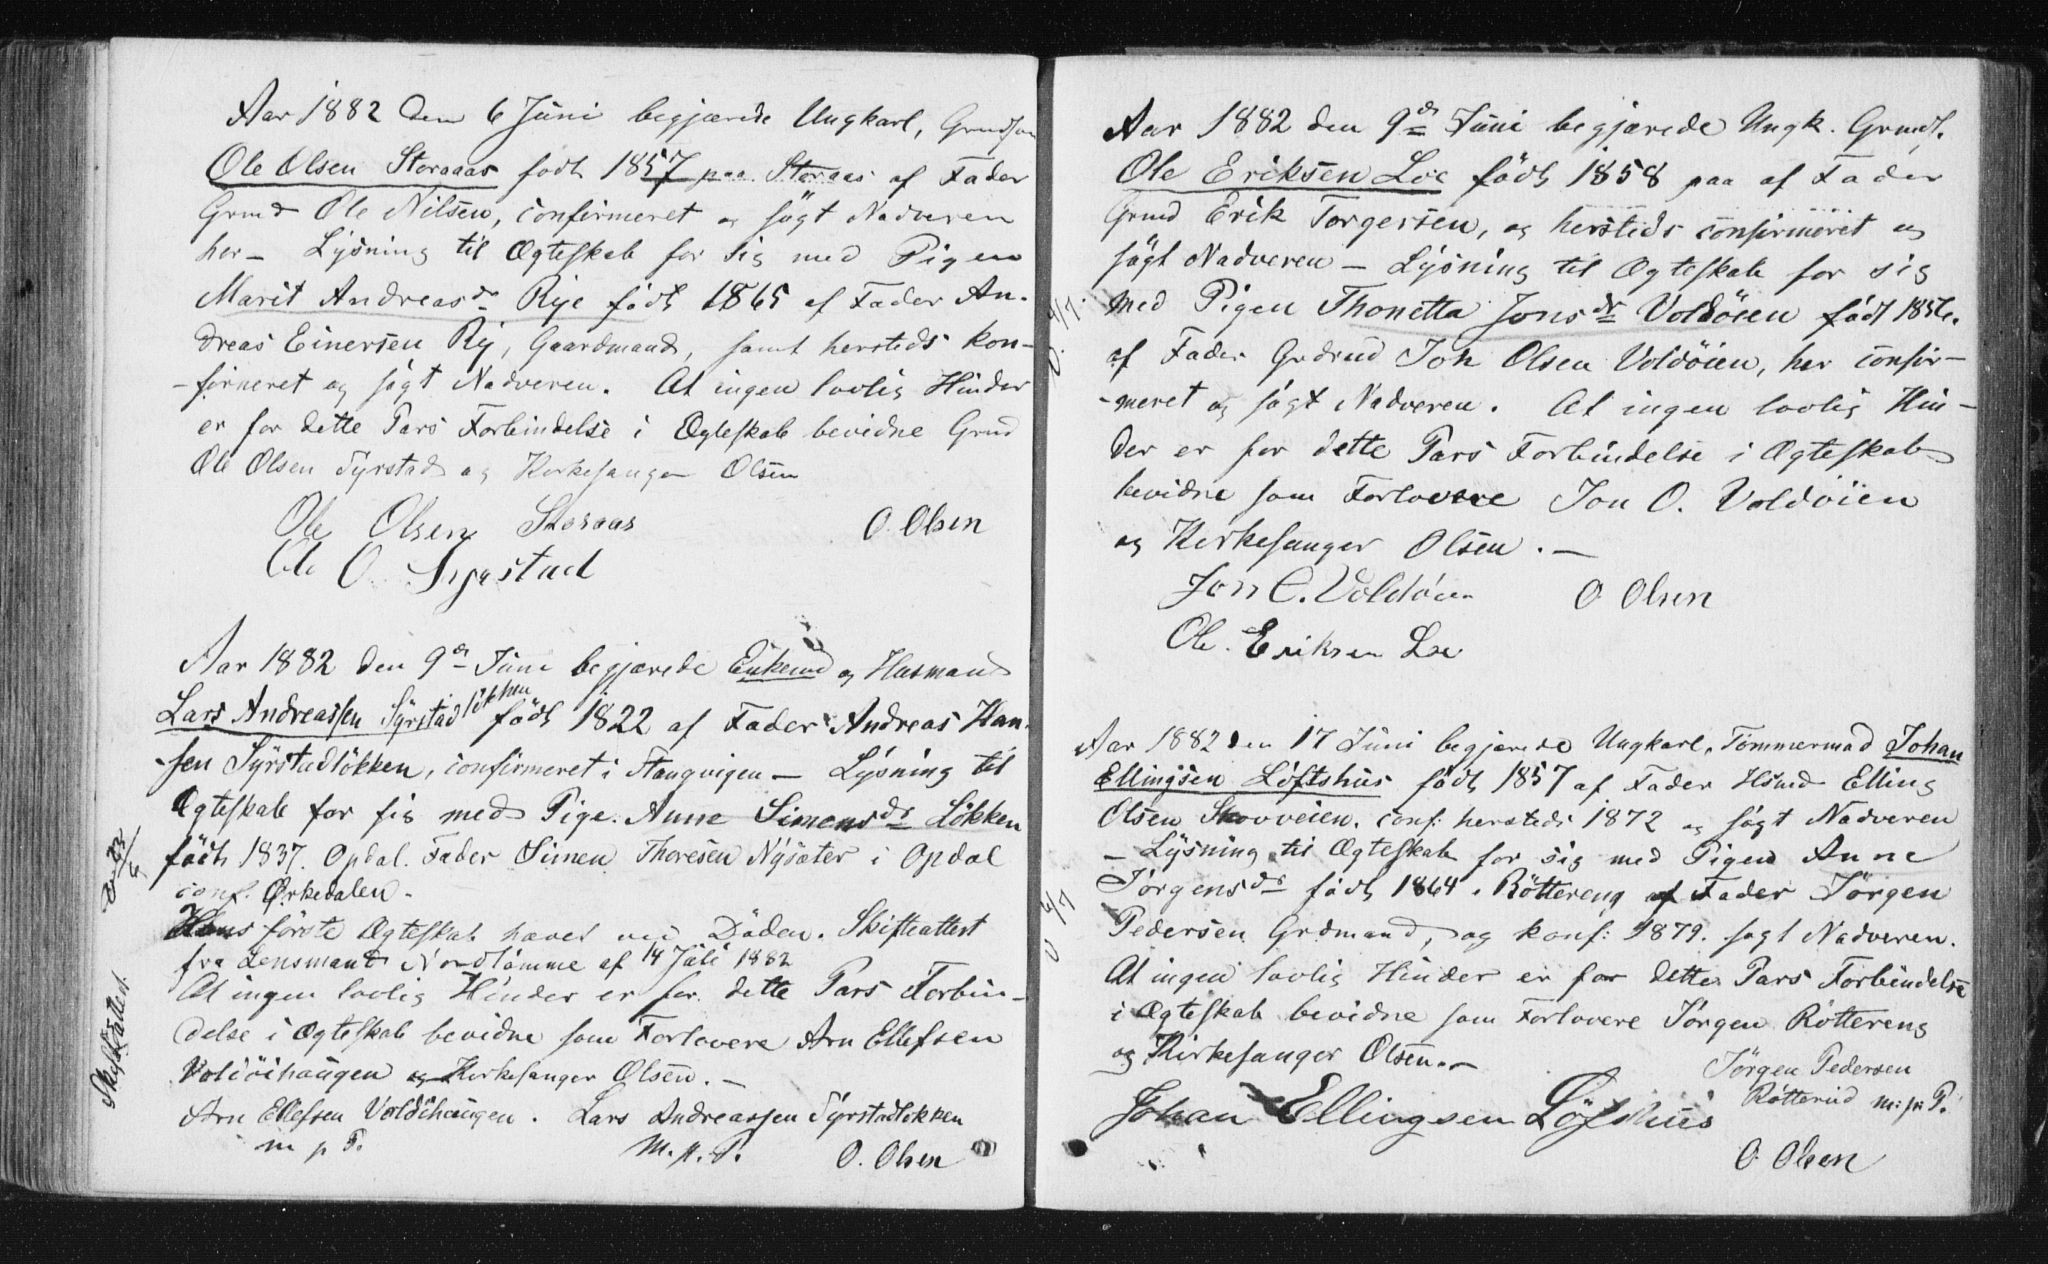 Aar 1882 den 6 Juni begjærede Ungkarl, Grmdson
Ole Olsen Storaas født 1857 paa Storaas af Fader
Grmd Ole Nilsen, confirmeret og søgt Nadveren
her – Lysning til Ægteskab for sig med Pigen
Marit Andreasdr Rye født 1865 af Fader An-
dreas Einersen Ry, Gaardmand, samt hersteds kon-
-firmeret og søgt Nadveren. At ingen lovlig Hinder
er for dette Pars Forbindelse i Ægteskab bevidne Grmd
Ole Olsen Syrstad og Kirkesanger Olsen
Ole Olsen Storaas O. Olsen
Ole O. Syrstad
Aar 1882 den 9de Juni begjærede Enkemd og Husmand
Lars Andreassen Syrstadløkken født 1822 af Fader Andreas Han-
-sen Syrstadløkken, confirmeret i Stangvigen – Lysning til
Ægteskab for sig med Pige. Anne Simonsdr Løkken
født 1837. Opdal. Fader Simen Thoresen Nysæter i Opdal
conf. Ørkedalen.
Hans første Ægteskab hævet ved Døden. Skifteattest
fra Lensmand Nordtømme af 14 Juli 1882
At ingen lovlig Hinder er for dette Pars Forbin-
delse i Ægteskab bevidne som Forlovere Arn Ellefsen
Voldøihaugen og Kirkesanger Olsen. –
Arn Ellefsen Voldøihaugen. Lars Andreassen Syrstadløkken
m p P. M. p. P. O. Olsen
23/6
Skifteattest
Aar 1882 den 9de Juni begjærede Ungk. Grmds.
Ole Eriksen Loe født 1858 paa af Fader
Grmd Erik Torgersen, og hersteds confirmeret og
søgt Nadveren – Lysning til Ægteskab for sig
med Pigen Thonetta Jonsdr Voldøien født 1856.
af Fader Grdmd Jon Olsen Voldøien, her confir-
-meret og søgt Nadveren. At ingen lovlig Hin-
der er for dette Pars Forbindelse i Ægteskab
bevidne som Forlovere Jon O. Voldøien
og Kirkesanger Olsen. –
Jon O. Voldøien O. Olsen
Ole Eriksen Loe
Aar 1882 den 17 Juni begjærede Ungkarl, Tømmermad Johan
Ellingsen Løftshus født 1857 af Fader Hsmd Elling
Olsen Skovveien. conf: hersteds 1872 og søgt Nadveren
– Lysning til Ægteskab for sig med Pigen Anne
Jørgensdr født 1864. Røttereng af Fader Jørgen
Pedersen Grdmand, og konf: 1879. søgt Nadveren.
At ingen lovlig Hinder er for dette Pars Forbindelse
i Ægteskab bevidne som Forlovere Jørgen Røttereng
og Kirkesanger Olsen. –
Jørgen Pedersen
Røtterud m: p: P.
Johan Ellingsen Løfshus
O. Olsen